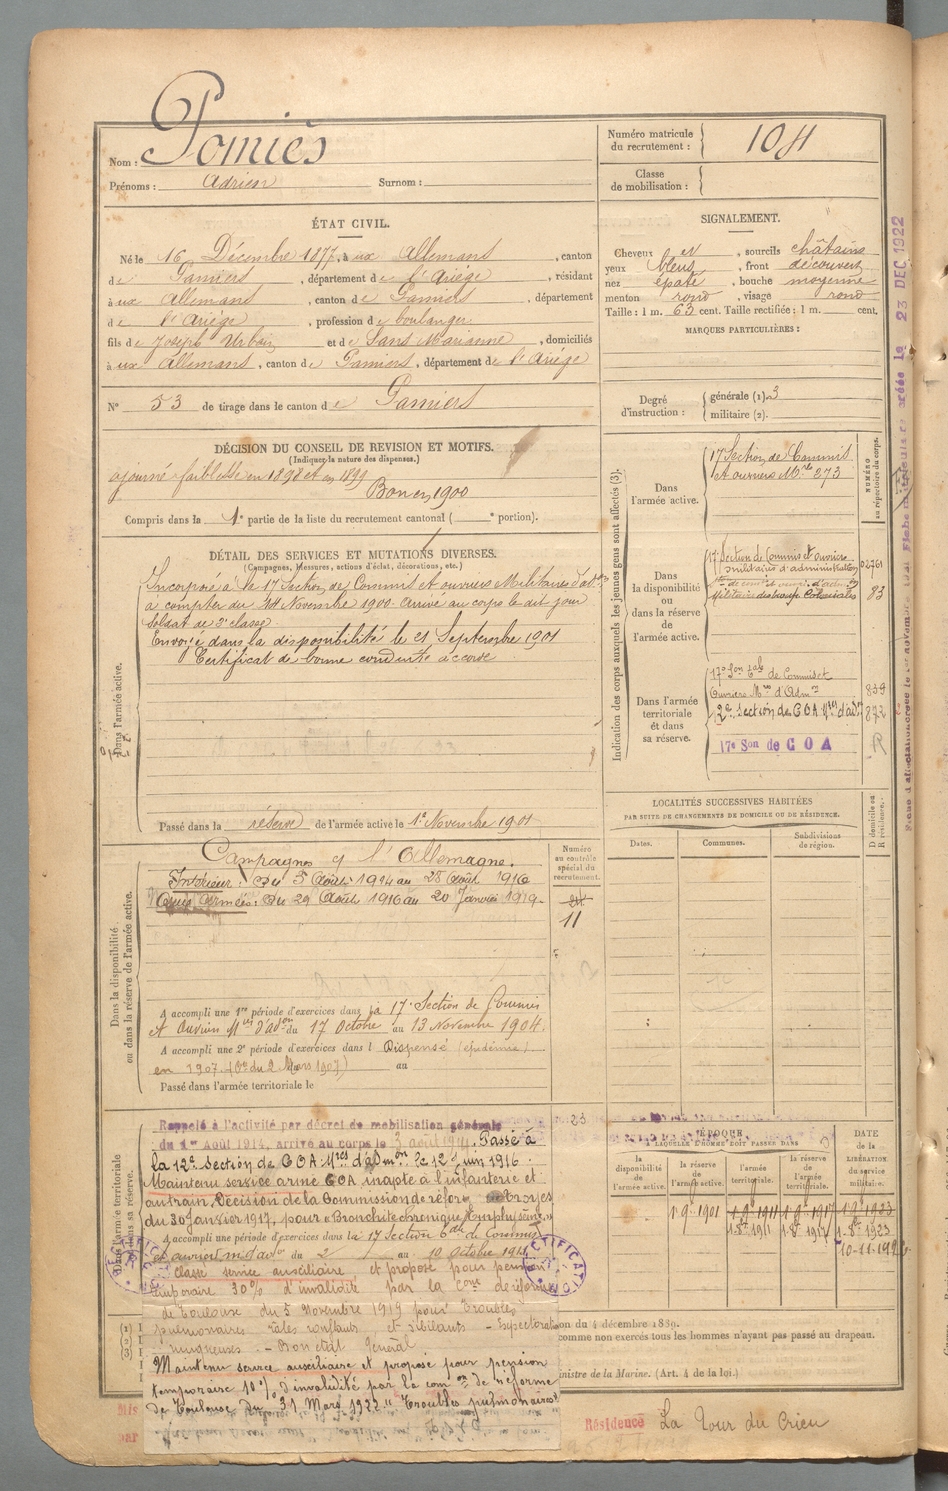 Nom : Pomiès
Prénoms : Adrien Surnom :
Numéro matricule du recrutement : 104
Classe de mobilisation :
ÉTAT CIVIL.
Né le 16 Décembre 1877, à ux Allemans, canton
de Pamiers, département de l'Ariège, résidant
à ux Allemans, canton de Pamiers, département
de l'Ariège, profession de boulanger
fils de Joseph Urbain et de Sans Marianne, domiciliés
à ux Allemans, canton de Pamiers, département de l'Ariège
N° 53 de tirage dans le canton de Pamiers
SIGNALEMENT.
Cheveux et, sourcils châtains
yeux bleus, front découvert
nez épaté, bouche moyenne
menton rond, visage rond
Taille : 1 m. 63 cent. Taille rectifiée : 1 m. cent.
MARQUES PARTICULIÈRES :
Degré d'instruction : générale (1). 3
militaire (2).
DÉCISION DU CONSEIL DE REVISION ET MOTIFS.
(Indiquez la nature des dispenses.)
ajourné faiblesse en 1898 et en 1899
Bon en 1900
Compris dans la 1e partie de la liste du recrutement cantonal ( e portion).
DÉTAIL DES SERVICES ET MUTATIONS DIVERSES.
(Campagnes, blessures, actions d'éclat, décorations, etc.)
Dans l'armée active.
Incorporé à la 17 Section de Commis et ouvriers Militaires d'adon
à compter du Novembre 1900. Arrivé au corps le dit jour
Soldat de 2e classe.
Envoyé dans la disponibilité le 21 Septembre 1901
Certificat de bonne conduite accordé
Passé dans la réserve de l'armée active le 1e Novembre 1901
Indication des corps auxquels les jeunes gens sont affectés (3).
NUMÉRO au répertoire du corps.
Dans l'armée active.
17 Section de Commis
et ouvriers Mres 273
Dans la disponibilité ou dans la réserve de l'armée active.
17e Section de Commis et ouvriers
militaires d'administration 02761
militaires des troupes Coloniales 83
Dans l'armée territoriale et dans sa réserve.
17e Son de Commis et
Ouvriers Mres d'Admon 839
12e Section de COA Mres d'adon 872
17e Son de COA R
LOCALITÉS SUCCESSIVES HABITÉES
PAR SUITE DE CHANGEMENTS DE DOMICILE OU DE RÉSIDENCE.
Dates. Communes. Subdivisions de région.
D domicile ou R résidence.
Dans la disponibilité ou dans la réserve de l'armée active.
Numéro au contrôle spécial du recrutement.
11
Campagnes c/ l'Allemagne.
Intérieur : Du 3 Août 1914 au 28 Août 1916
Aux Armées : Du 29 Août 1916 au 20 Janvier 1919.
A accompli une 1re période d'exercices dans la 17e Section de Commis
et Ouvriers Mres d'adon du 17 Octobre au 13 Novembre 1904.
A accompli une 2e période d'exercices dans l Dispensé (épidémie)
en 1907 (Don du 2 Mars 1907) au
Passé dans l'armée territoriale le
Dans l'armée territoriale et dans sa réserve.
Rappelé à l'activité par décret de mobilisation générale
du 1er Août 1914, arrivé au corps le 3 août 1914. Passé à
la 12e Section de COA Mres d'admon le 12 Juin 1916.
Maintenu service armé COA inapte à l'infanterie et
au train, Décision de la Commission de réforme de Troyes
du 30 Janvier 1917, pour « Bronchite chronique Emphysème. »
A accompli une période d'exercices dans la 17 Section de Commis
et ouvriers m. d'adon du 2 au 10 Octobre 1911
Classé service auxiliaire et proposé pour pension
temporaire 30% d'invalidité par la Com de réforme
de Toulouse du 5 Novembre 1919 pour Troubles
pulmonaires râles ronflants et sibilants - Expectoration
muqueuse - Bon état Général
Maintenu service auxiliaire et proposé pour pension
temporaire 10% d'invalidité par la comon de réforme
de Toulouse du 31 Mars 1922 " Troubles pulmonaires "
RECTIFICATION
ÉPOQUE
À LAQUELLE L'HOMME DOIT PASSER DANS
la disponibilité de l'armée active. la réserve de l'armée active. l'armée territoriale. la réserve de l'armée territoriale.
DATE de la LIBÉRATION du service militaire.
1.9bre 1901 1.9bre 1911 1.9bre 1917 1.9bre 1923
1.8bre 1911 1.8bre 1917 1.8bre 1923
10-11-192
on du 4 décembre 1889.
comme non exercés tous les hommes n'ayant pas passé au drapeau.
inistre de la Marine. (Art. 4 de la loi.)
Résidence La Tour du Crieu
23 DEC 1922